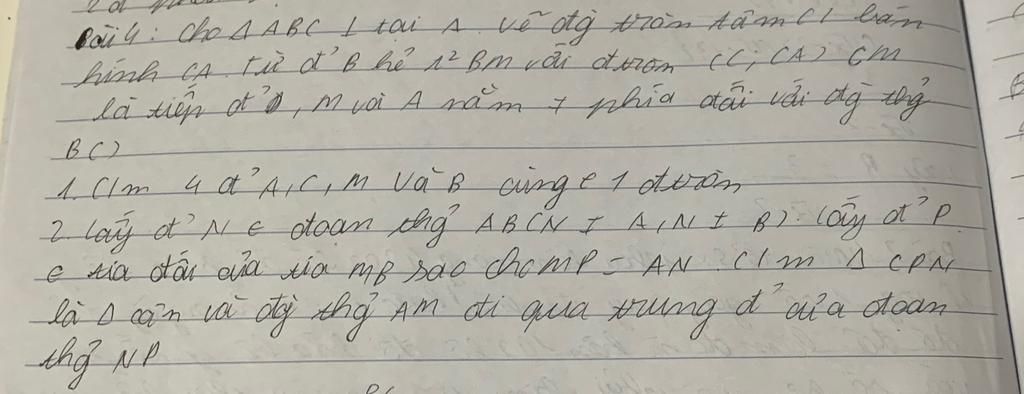 Bài 4: Cho Δ ABC ⊥ tại A. Vẽ đg tròn tâm C, bán
kính CA. Từ đ' B kẻ t² BM với đtròn (C, CA) (M
là tiếp đ', M và A nằm ≠ phía đối với đg thg̉
BC)
1. C/m 4 đ' A, C, M và B cùng ∈ 1 đtròn
2. Lấy đ' N ∈ đoạn thg̉ AB (N ≠ A, N ≠ B). Lấy đ' P
∈ tia đối của tia MB sao cho MP = AN. C/m Δ CPN
là Δ cân và đg thg̉ AM đi qua trung đ' của đoạn
thg̉ NP